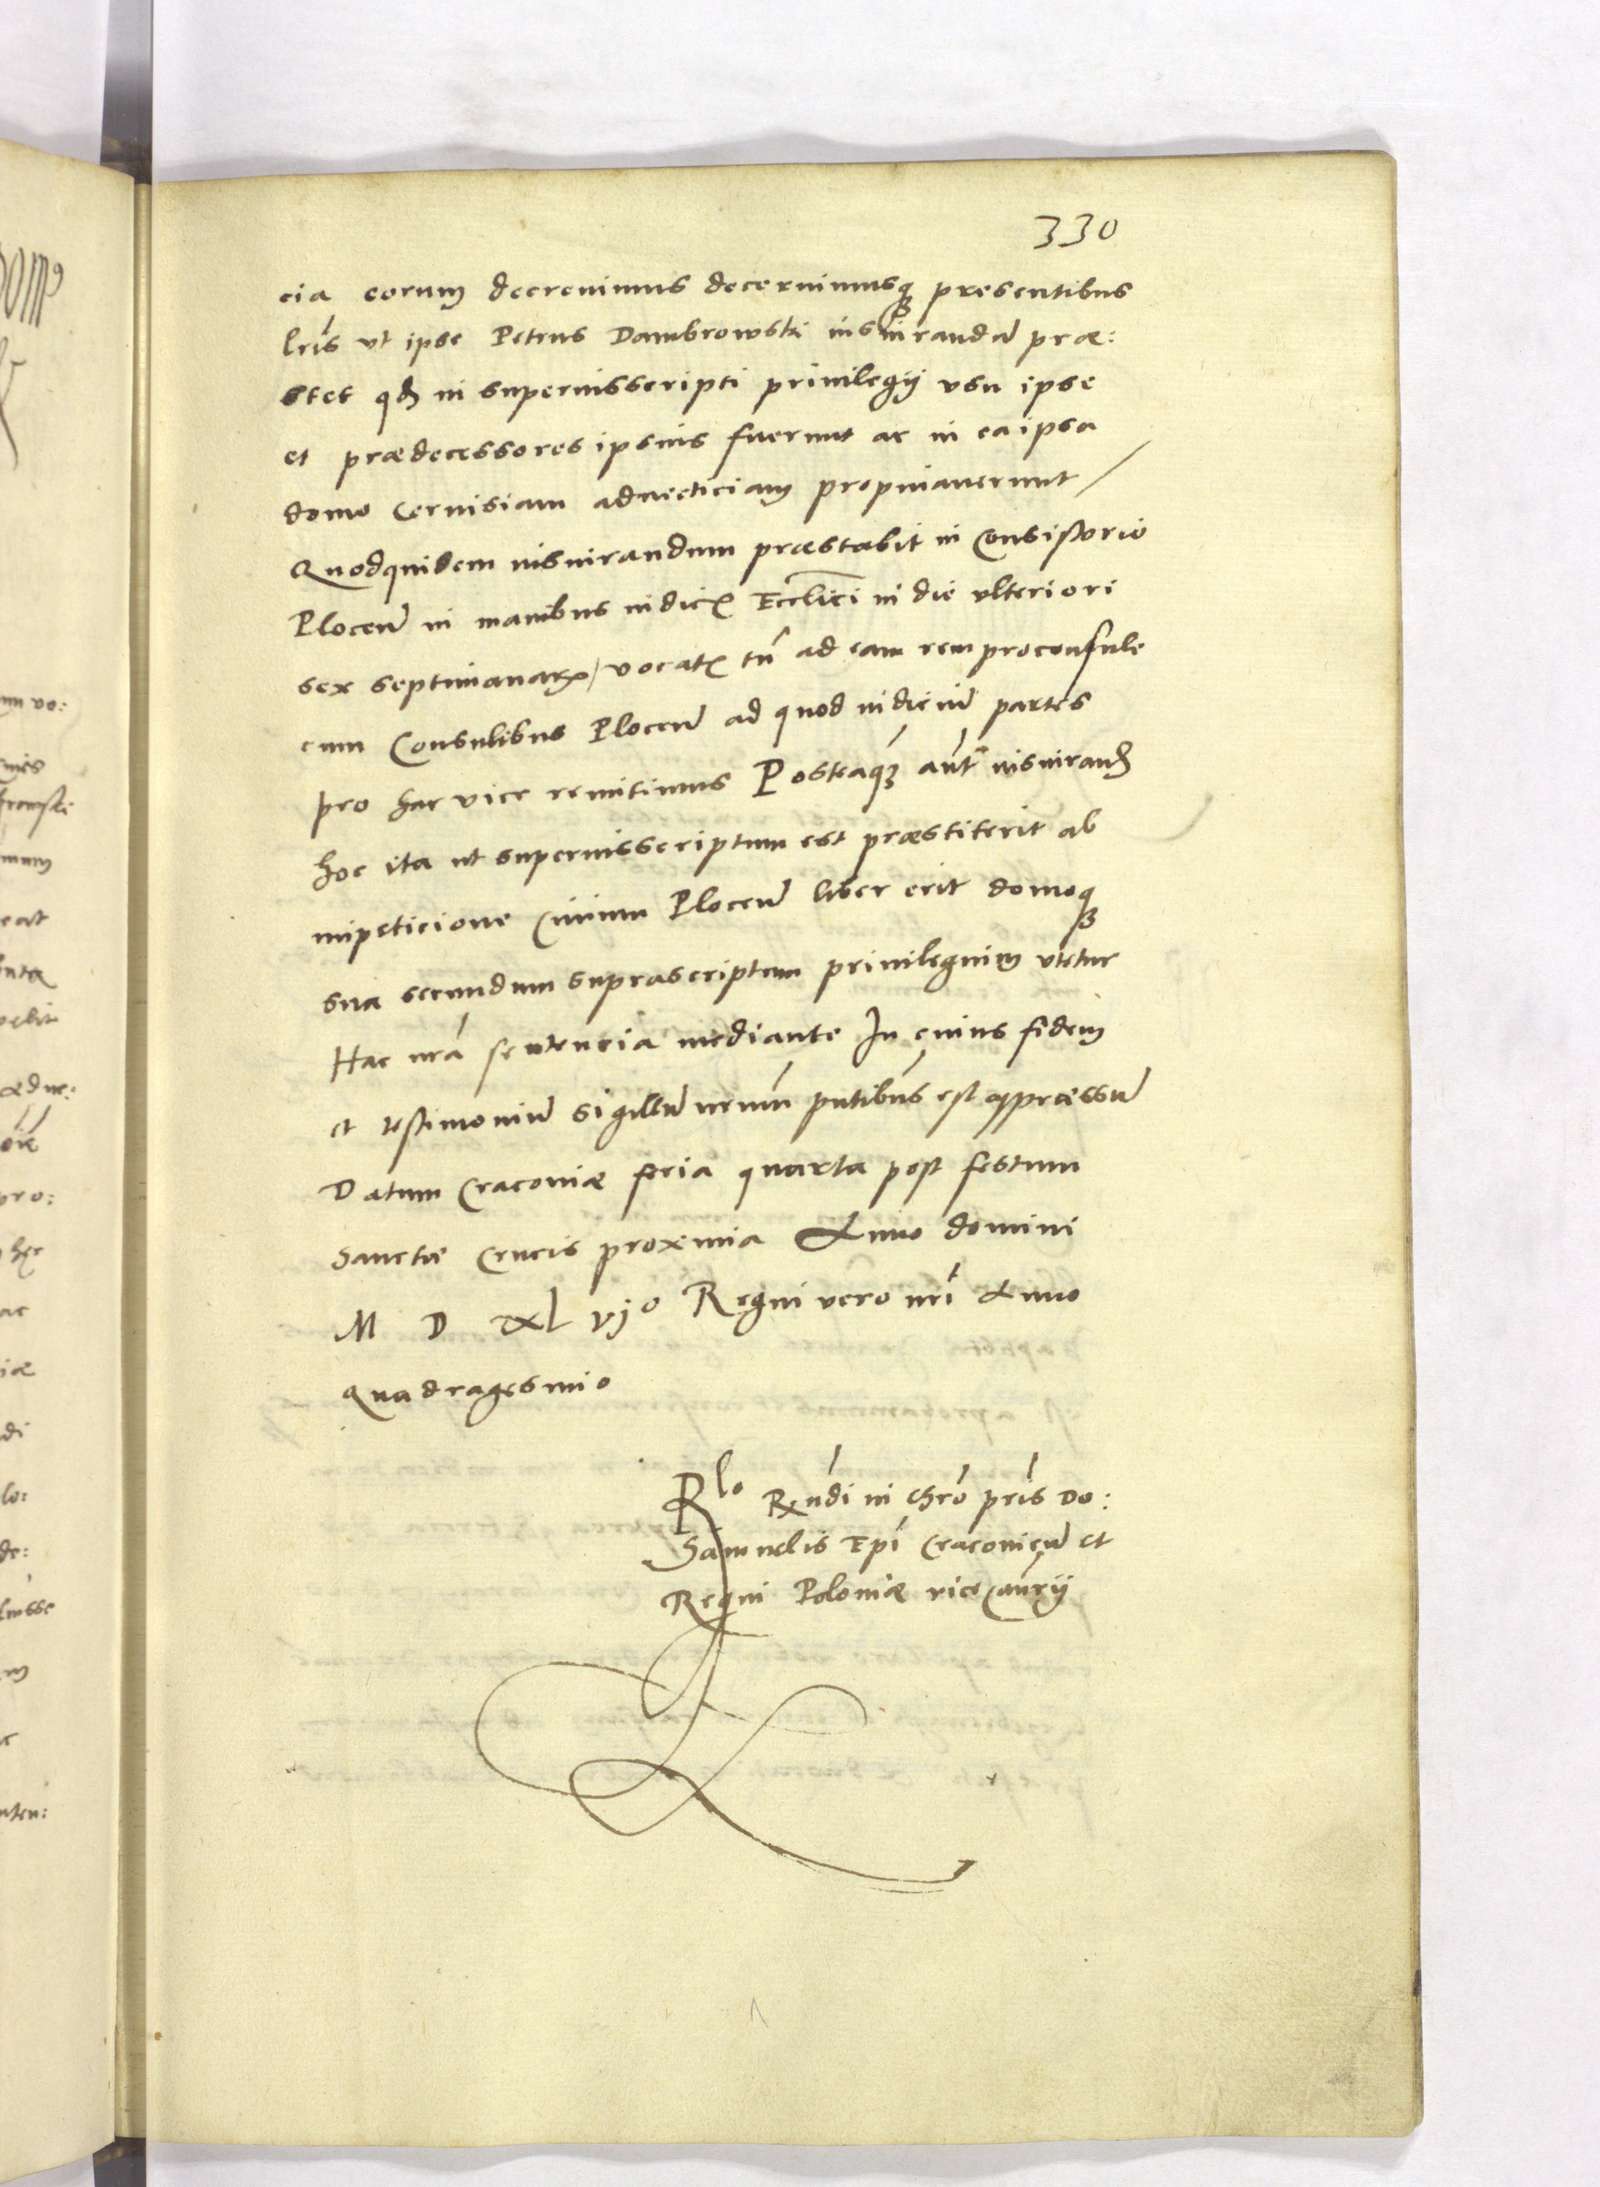 330
cia eorum decrevimus decernimusq presentibus
lris vt ipse Petrus Dambrowski iusiurandũ præ:
stet qd in superiusscripti privilegij vsu ipse
et prædecessores ipsius fuerunt ac in ea ipsa
domo Cervisiam advecticiam propinaverunt /
Quodquidem iusiurandum præstabit in Consistorio
Plocen̄ in manibus iudicis Ecclīci in die vlteriori
sex septimanarum / vocatis tn̄ ad eam rem proconsule
cum Consulibus Plocen̄ ad quod iudiciū partes
pro hac vice remittimus Posteaq aūt iusiurand
hoc ita ut superiusscriptum est præstiterit ab
impeticione Civium Plocen̄ liber erit domoq
sua secundum suprascriptum privilegium vtetur
Hac nrā sentencia mediante In cuius fidem
et testimoniū sigillū nrum̄ pntibus est appressū
Datum Cracoviæ feria quarta post festum
Sanctæ Crucis proxima Anno domini
M D XL vjo Regni vero nrī Anno
Quadragesimo
Rlo Rndi in Chro pris Do:
Samuelis Epī Cracovien̄ et
Regni Poloniæ vice Cancrij